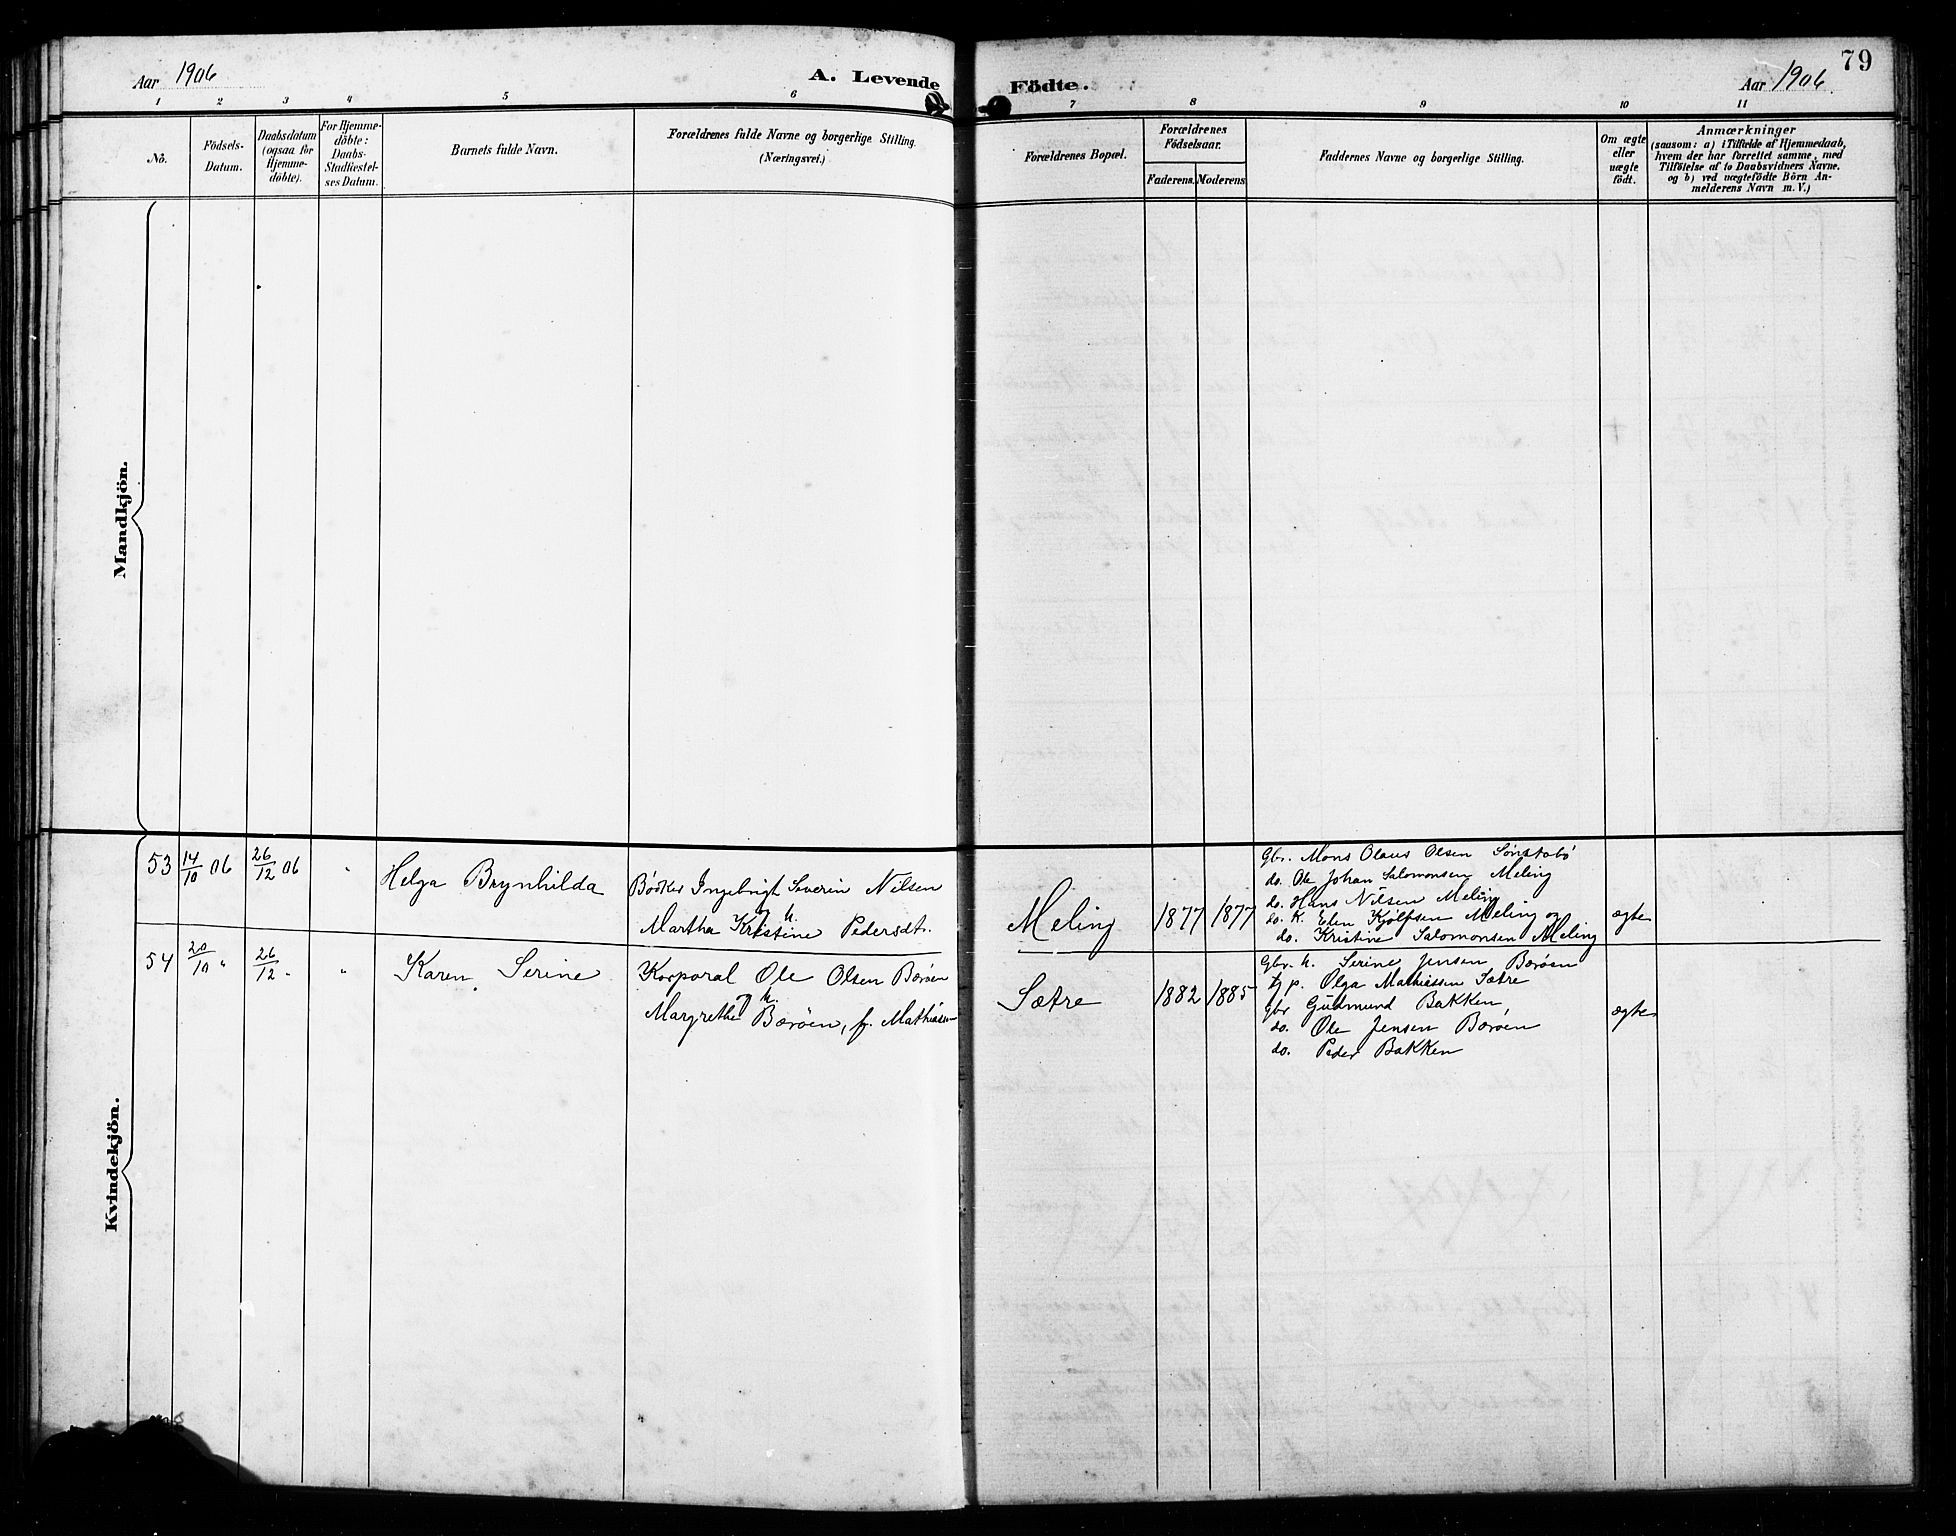 Aar 1906
A. Levende
Födte.
Aar 1906.
79
1 2 3 4 5 6 7 8 9 10 11
No.
Födsels-
Datum.
Daabsdatum
(ogsaa for
Hjemme-
döbte).
For Hjemme-
döbte:
Daabs-
Stadfæstel-
ses Datum.
Barnets fulde Navn.
Forældrenes fulde Navne og borgerlige Stilling.
(Næringsvei.)
Forældrenes Bopæl.
Forældrenes
Födselsaar.
Faderens. Moderens
Faddernes Navne og borgerlige Stilling.
Om ægte
eller
uægte
födt.
Anmærkninger
(saasom: a) i Tilfælde af Hjemmedaab,
hvem der har forrettet samme, med
Tilföielse af to Daabsvidners Navne.
og b) ved uægtefödte Börn An-
melderens Navn m. V.)
Mandkjön.
Kvindekjön.
53 14/10 06 26/12 06 " Helga Brynhilda
Bødker Ingebrigt Severin Nilsen
og h.
Martha Kristine Pedersdt.
Meling 1877 1877
Gbr. Mons Olaus Olsen Sønstabø
do. Ole Johan Salomonsen Meling
do. Hans Nilsen Meling
do. K. Elen Kjølfsen Meling og
do. Kristine Salomonsen Meling
ægte
54 20/10 " 26/12 " " Karen Serine
Korporal Ole Olsen Børøen
og h.
Margrethe Børøen, f. Mathiasen
Sætre 1882 1885
Gbr. h. Serine Jensen Børøen
tj p. Olga Mathiassen Sætre
Gbr Gudmund Bakken
do. Ole Jensen Børøen
do. Peder Bakken
ægte